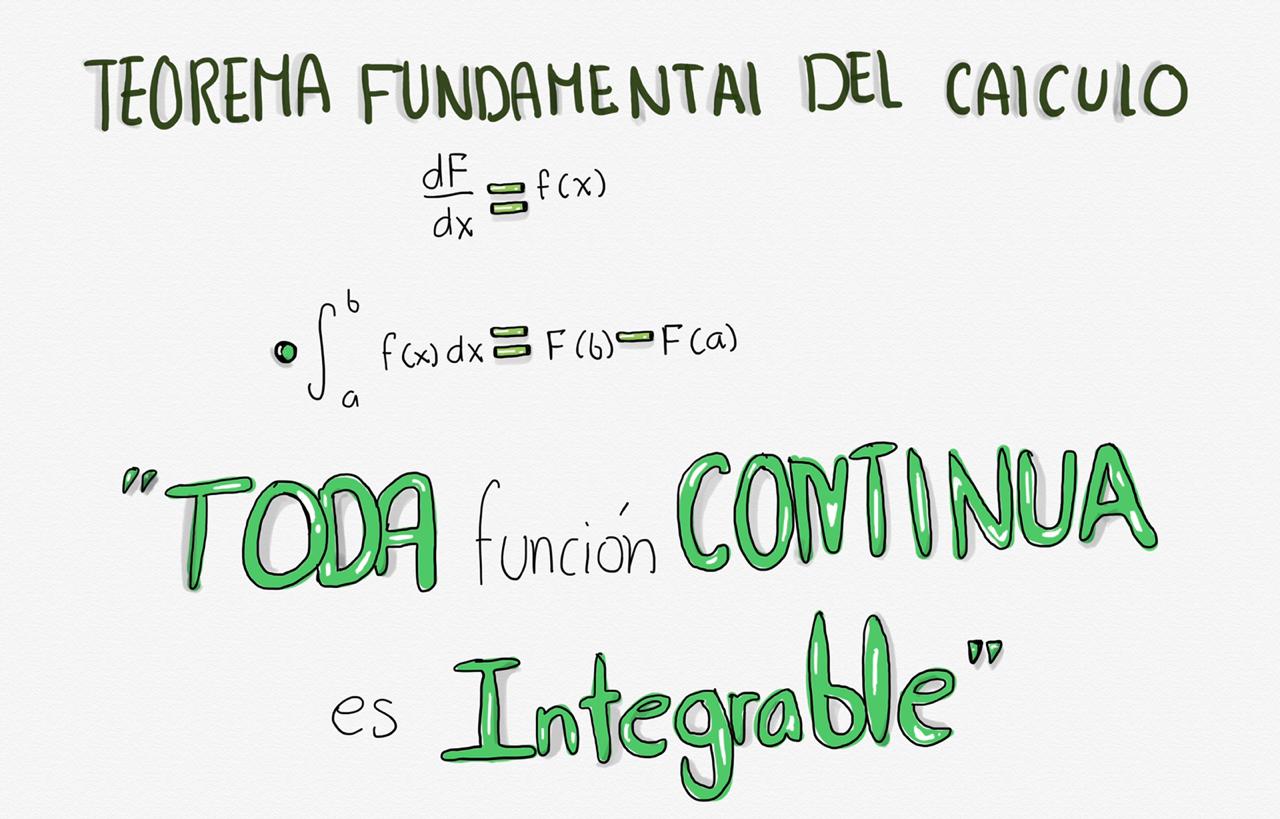 TEOREMA FUNDAMENTAL DEL CALCULO
dF/dx = f(x)
• ∫_a^b f(x) dx = F(b) - F(a)
"TODA función CONTINUA
es Integrable"